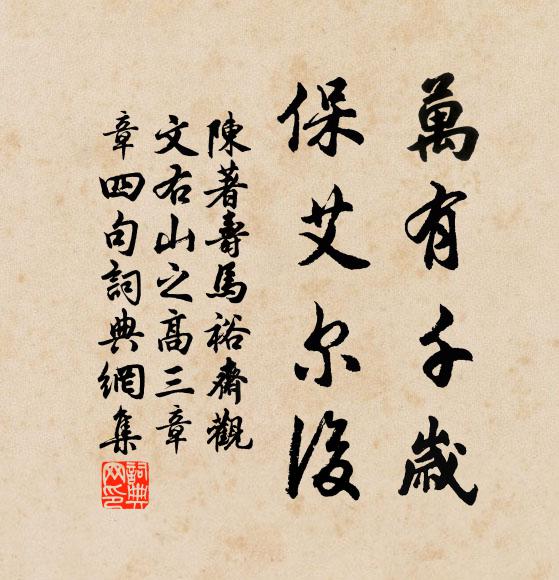 萬有千歲
保艾尔後
陳著壽馬裕齋觀
文右山之高三章
章四句詞典網集
詞典网印